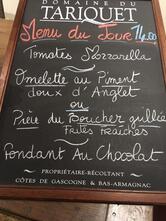 DOMAINE DU
TARIQUET
Menu du Jour 14,00
Tomates Mozzarella
Omelette au Piment
doux d'Anglet
ou
Pièce du Boucher grillée
Frites Fraîches
Fondant Au Chocolat
PROPRIÉTAIRE-RÉCOLTANT
CÔTES DE GASCOGNE & BAS-ARMAGNAC